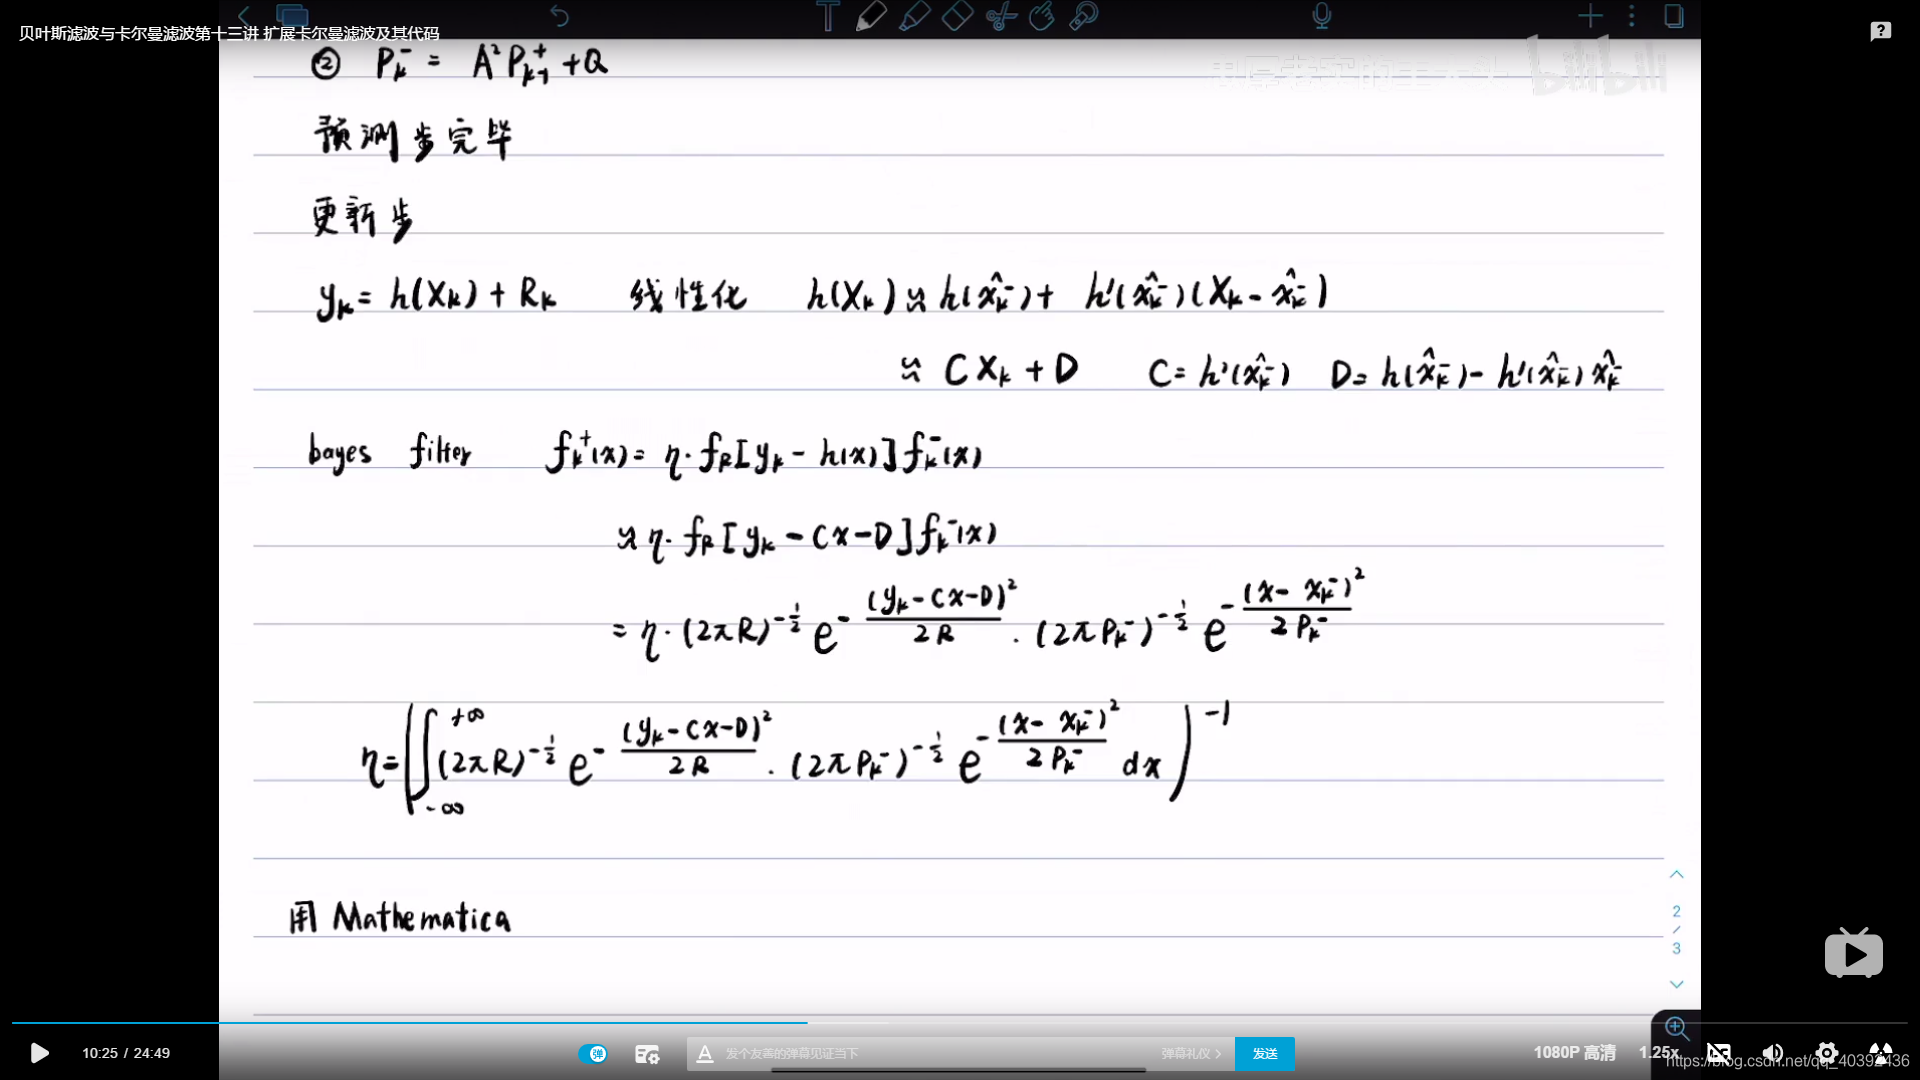 贝叶斯滤波与卡尔曼滤波第十三讲 扩展卡尔曼滤波及其代码
bilibili
② P_k^- = A² P_{k-1}^+ + Q
预测步完毕
更新步
y_k = h(X_k) + R_k 线性化 h(X_k) ≈ h(x̂_k^-) + h'(x̂_k^-)(X_k - x̂_k^-)
≈ C X_k + D C = h'(x̂_k^-) D = h(x̂_k^-) - h'(x̂_k^-) x̂_k^-
bayes filter f_k^+(x) = η · f_R[y_k - h(x)] f_k^-(x)
≈ η · f_R[y_k - Cx - D] f_k^-(x)
= η · (2πR)^{-1/2} e^{-(y_k - Cx - D)²/2R} · (2πP_k^-)^{-1/2} e^{-(x - x_k^-)²/2P_k^-}
η = (∫_{-∞}^{+∞} (2πR)^{-1/2} e^{-(y_k - Cx - D)²/2R} · (2πP_k^-)^{-1/2} e^{-(x - x_k^-)²/2P_k^-} dx)^{-1}
用 Mathematica
2
/
3
10:25 / 24:49
弹
A 发个友善的弹幕见证当下
弹幕礼仪 >
发送
1080P 高清
1.25x
https://blog.csdn.net/qq_40392436